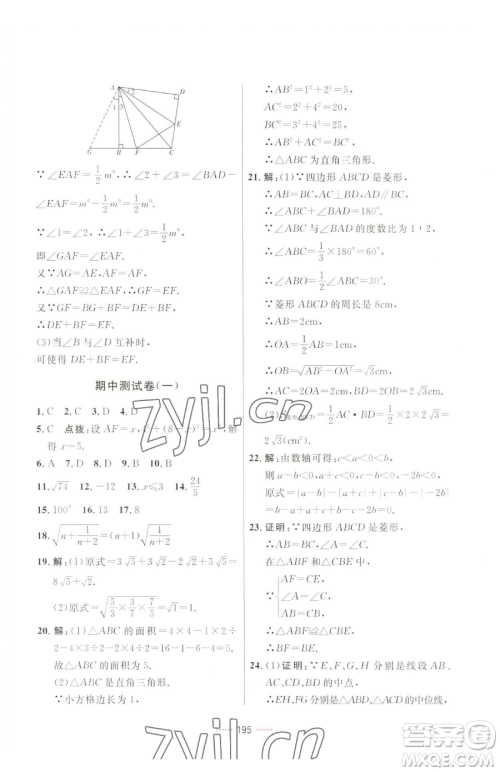 A
D
E
G
B
F
C
1
3
∵∠EAF=1/2 m°,∴∠2+∠3=
m°-1/2 m°=1/2 m°.
∵∠1=∠2,∴∠1+∠3=1/2 m°.
即∠GAF=∠EAF.
又∵AG=AE,AF=AF,
∴△GAF≌△EAF.∴GF=EF.
又∵GF=BG+BF=DE+BF,
∴DE+BF=EF.
(3)当∠B与∠D互补时,可使得
DE+BF=EF.
期中测试卷(一)
1. C 2. C 3. D 4. D
5. C 点拨:设AF=x,
得x=5.
6. A 7. D 8. D 9. D 10. B
11. √74 12. -12 13. x≤3 14. 24/5
15. 100° 16. 13 17. 8
18. √(n+1/(n+2))=(n+1)√(1/(n+2))
19. 解:(1)原式=3√5+3√2-2√2+5√5=
8√5+√2.
(2)原式=√(5/3×3/7×7/5)=1.
20. 解:(1)△ABC的面积=4×4-1×2÷
2-4×3÷2-2×4÷2=16-1-6-4=5.
故△ABC的面积为5.
(2)△ABC是直角三角形.
∵小方格边长为1,
∴AB²=1²+2²=5,
AC²=2²+4²=20,
BC²=3²+4²=25,
∴AB²+AC²=BC².
∴△ABC为直角三角形.
21. 解:(1)∵四边形ABCD是菱形,
∴AB=BC,AC⊥BD,AD∥BC.
∴∠ABC+∠BAD=180°.
∵∠ABC与∠BAD的度数比为1∶2,
∴∠ABC=1/3×180°=60°.
∴∠ABO=1/2∠ABC=30°.
∵菱形ABCD的周长是8cm,
∴AB=2cm.
∴OA=1/2AB=1cm.
∴OB=√(AB²-OA²)=√3cm.
∴AC=2OA=2cm,BD=2OB=2√3cm.
1/2AC·BD=1/2×2×2√3=
2√3(cm²).
22. 解:由数轴可得:c<a<0<b,
则a-b<0,a+c<0,b-c>0.
原式=|a-b|-|a+c|+|b-c|=
23. 证明:∵四边形ABCD是菱形,
∴AB=BC,∠A=∠C.
在△ABF和△CBE中,
AF=CE,
∵∠A=∠C,
AB=CB,
∴△ABF≌△CBE(SAS).
∴∠ABF=∠CBE.
24. (1)证明:∵E、F、G、H分别是线段AB、
的中点,
∴EH、FG分别是△ABD、△ACD的中位线,
195
zyjl.cn
zyjl.cn
答案圈
MXQE.COM